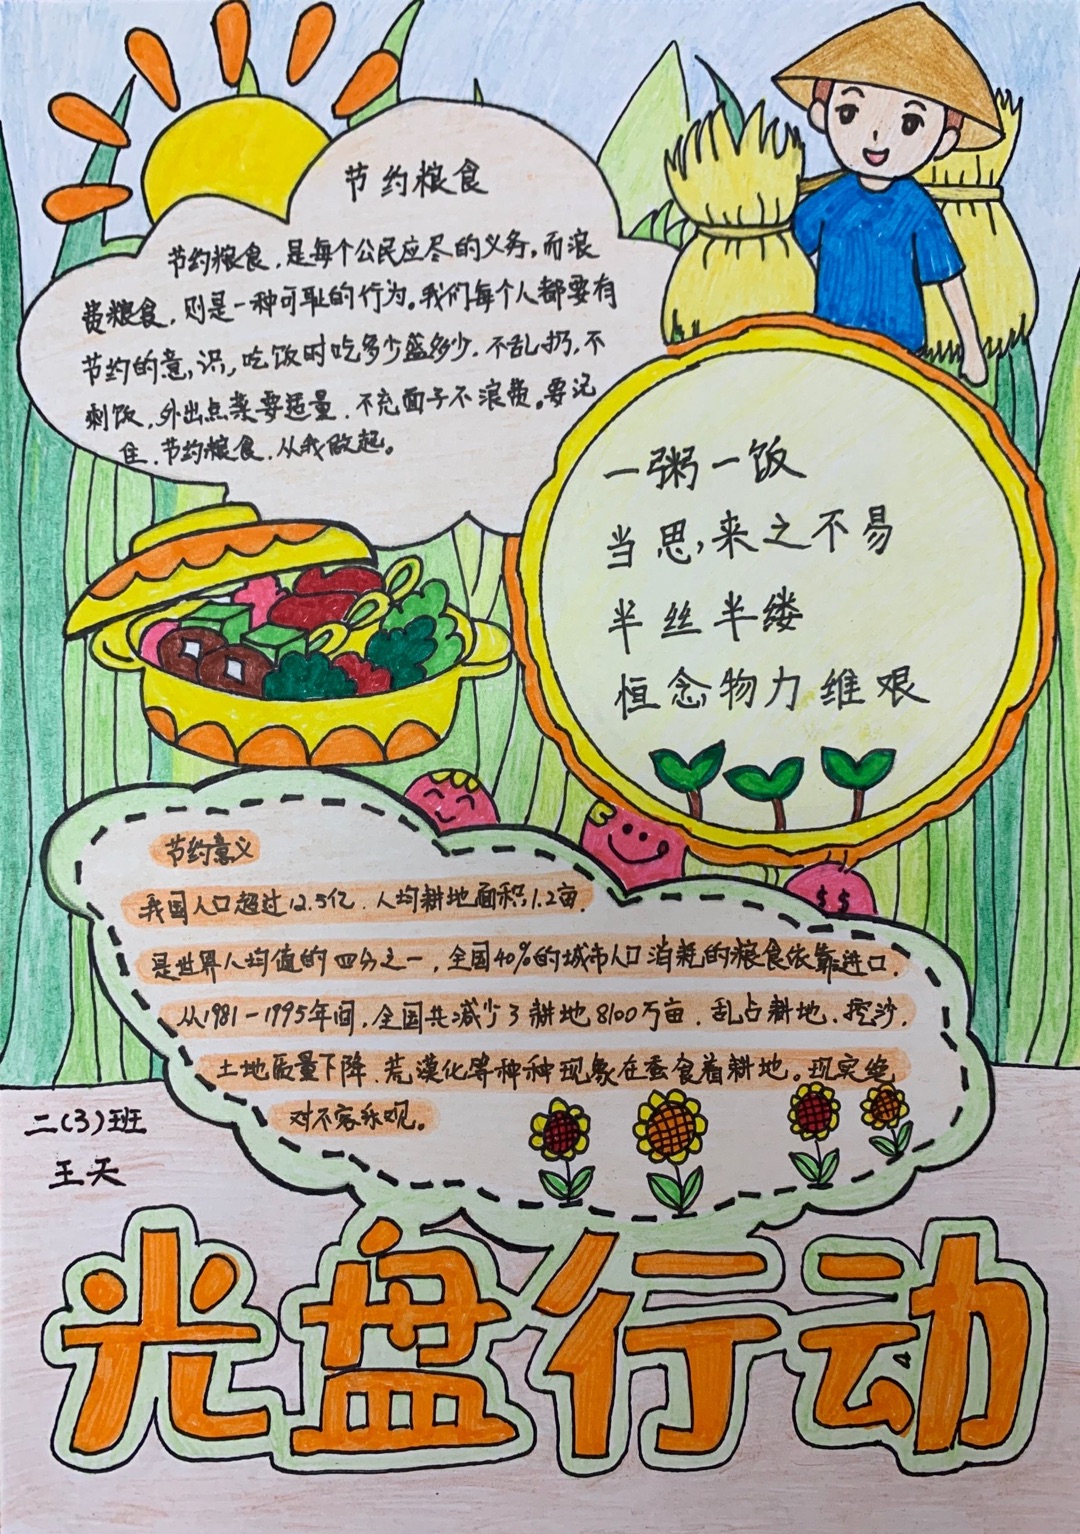 节约粮食
节约粮食，是每个公民应尽的义务。而浪
费粮食，则是一种可耻的行为。我们每个人都要有
节约的意识，吃饭时吃多少盛多少，不乱扔，不
剩饭，外出点菜要适量，不充面子不浪费。要记
住，节约粮食，从我做起。
一粥一饭
当思，来之不易
半丝半缕
恒念物力维艰
节约意义
我国人口超过12.5亿，人均耕地面积1.2亩，
是世界人均值的四分之一，全国40%的城市人口消耗的粮食依靠进口，
从1981-1995年间，全国共减少了耕地8100万亩，乱占耕地、挖沙，
土地质量下降、荒漠化等种种现象在蚕食着耕地。现实绝
对不容乐观。
二(3)班
王天
光盘行动